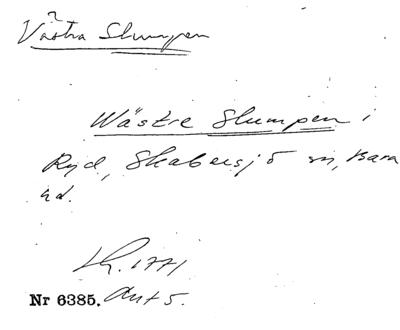 Västra Slumpen
Wästre Slumpen i
Ryd, Skabersjö sn, Bara
hd.
Lh. 1771
Nr 6385. Akt 5.